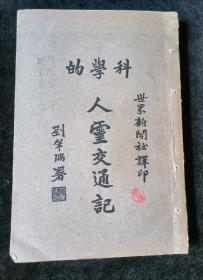 科學的
人靈交通記
世界新聞社譯印
劉半隅署